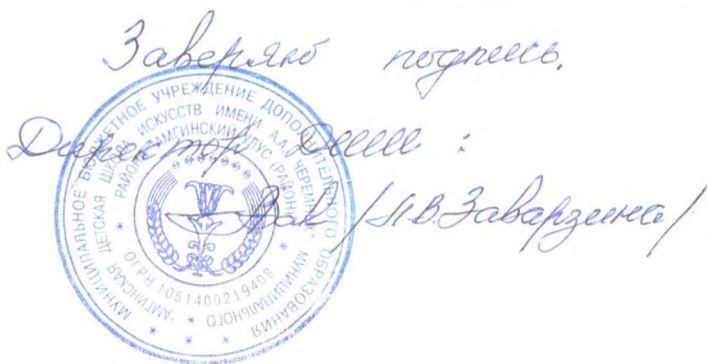 Заверяю подпись.
Директор ДШИ :
Зав /Л.В.Заварзина/
МУНИЦИПАЛЬНОЕ БЮДЖЕТНОЕ УЧРЕЖДЕНИЕ ДОПОЛНИТЕЛЬНОГО ОБРАЗОВАНИЯ
"АМГИНСКАЯ ДЕТСКАЯ ШКОЛА ИСКУССТВ ИМЕНИ А.А. ЧЕРЕМНЫХ" МУНИЦИПАЛЬНОГО
РАЙОНА "АМГИНСКИЙ УЛУС (РАЙОН)"
ОГРН 1051400219408